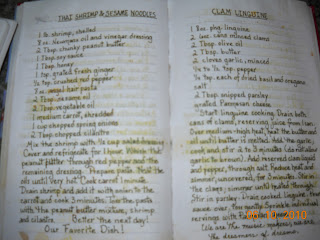 THAI SHRIMP & SESAME NOODLES
1 lb. shrimp, shelled
1 8oz. Newman's oil and vinegar dressing
2 Tbsp. chunky peanut butter
1 Tbsp. soy sauce
1 Tbsp. honey
1 tsp. grated fresh ginger
½ tsp. crushed red pepper
8oz. angel hair pasta
2 Tbsp. sesame oil
2 Tbsp. vegetable oil
1 medium carrot, shredded
1 cup chopped spring onions
2 Tbsp. chopped cilantro
Mix the shrimp with ⅓ cup salad dressing
Cover and refrigerate for 1 hour. Whisk the
peanut butter through red pepper and the
remaining dressing. Prepare pasta. Heat the
oils until very hot. Cook carrot 1 minute.
Drain shrimp and add it with onion to the
carrot and cook 3 minutes. Toss the pasta
with the peanut butter mixture, shrimp
and cilantro. Better the next day!
Our Favorite Dish!
CLAM LINGUINE
1 8oz. pkg. linguine
2 cans minced clams
2 Tbsp. olive oil
2 Tbsp. butter
2 cloves garlic, minced
tsp. pepper
½ tsp. each of dried basil and oregano
salt
2 Tbsp. snipped parsley
grated Parmesan cheese
Start linguine cooking. Drain both
cans of clams, reserving juice from 1 can.
Over medium-high heat, heat the butter and
oil until butter is melted. Add the garlic,
reduce heat, stir 2 to 3 minutes (do not allow
garlic to brown). Add reserved clam liquid
and pepper, through salt. Reduce heat and
simmer, uncovered, for 3 minutes. Stir in
the clams; simmer until heated through.
Stir in parsley; drain cooked linguine. Toss
sauce over this gently. Sprinkle individual
servings with
We are the music makers, we are
the dreamers of dreams.
2010